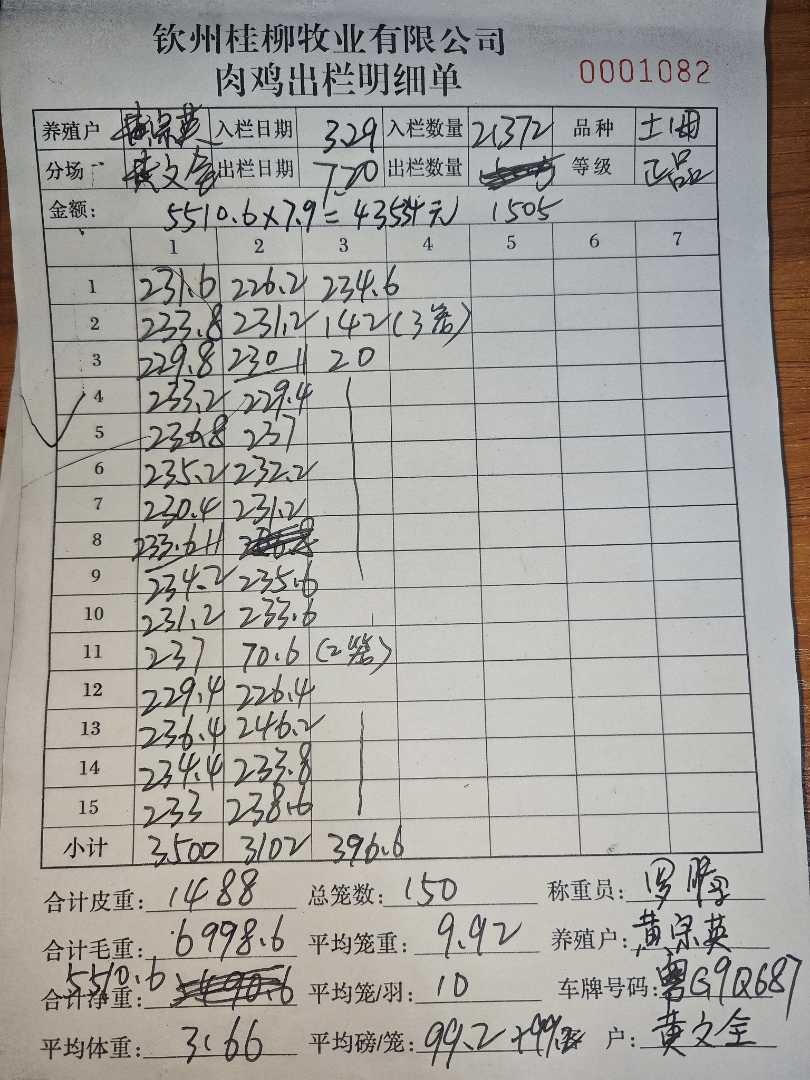 钦州桂柳牧业有限公司
肉鸡出栏明细单 0001082
养殖户 黄宗英 入栏日期 3.29 入栏数量 21372 品种 土二
分场 黄文全 出栏日期 7.20 出栏数量 等级 正品
金额: 5510.6×7.9=43534元 1505
1 2 3 4 5 6 7
1 231.6 226.2 234.6
2 233.8 231.2 142 (3笼)
3 229.8 230 11 20
4 233.2 229.4
5 236.8 237
6 235.2 232.2
7 230.4 231.2
8 233.6 11
9 234.2 235.6
10 231.2 233.6
11 237 70.6 (2笼)
12 229.4 226.4
13 236.4 246.2
14 234.4 233.8
15 233 238.6
小计 3500 3102 396.6
合计皮重: 1488 总笼数: 150 称重员: 罗
合计毛重: 6998.6 平均笼重: 9.92 养殖户: 黄宗英
5510.6
合计净重: 平均笼/羽: 10 车牌号码: 粤G9Q687
平均体重: 3.66 平均磅/笼: 99.2 户: 黄文全